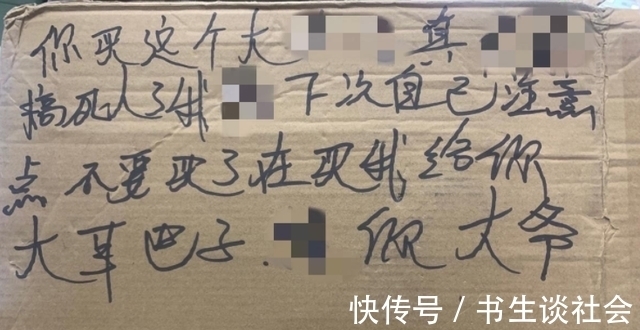 你买这个大 真
搞死人了我 下次自己注意
点 不要买了在买我给你
大草巴子. 你大爷
快传号 / 书生谈社会